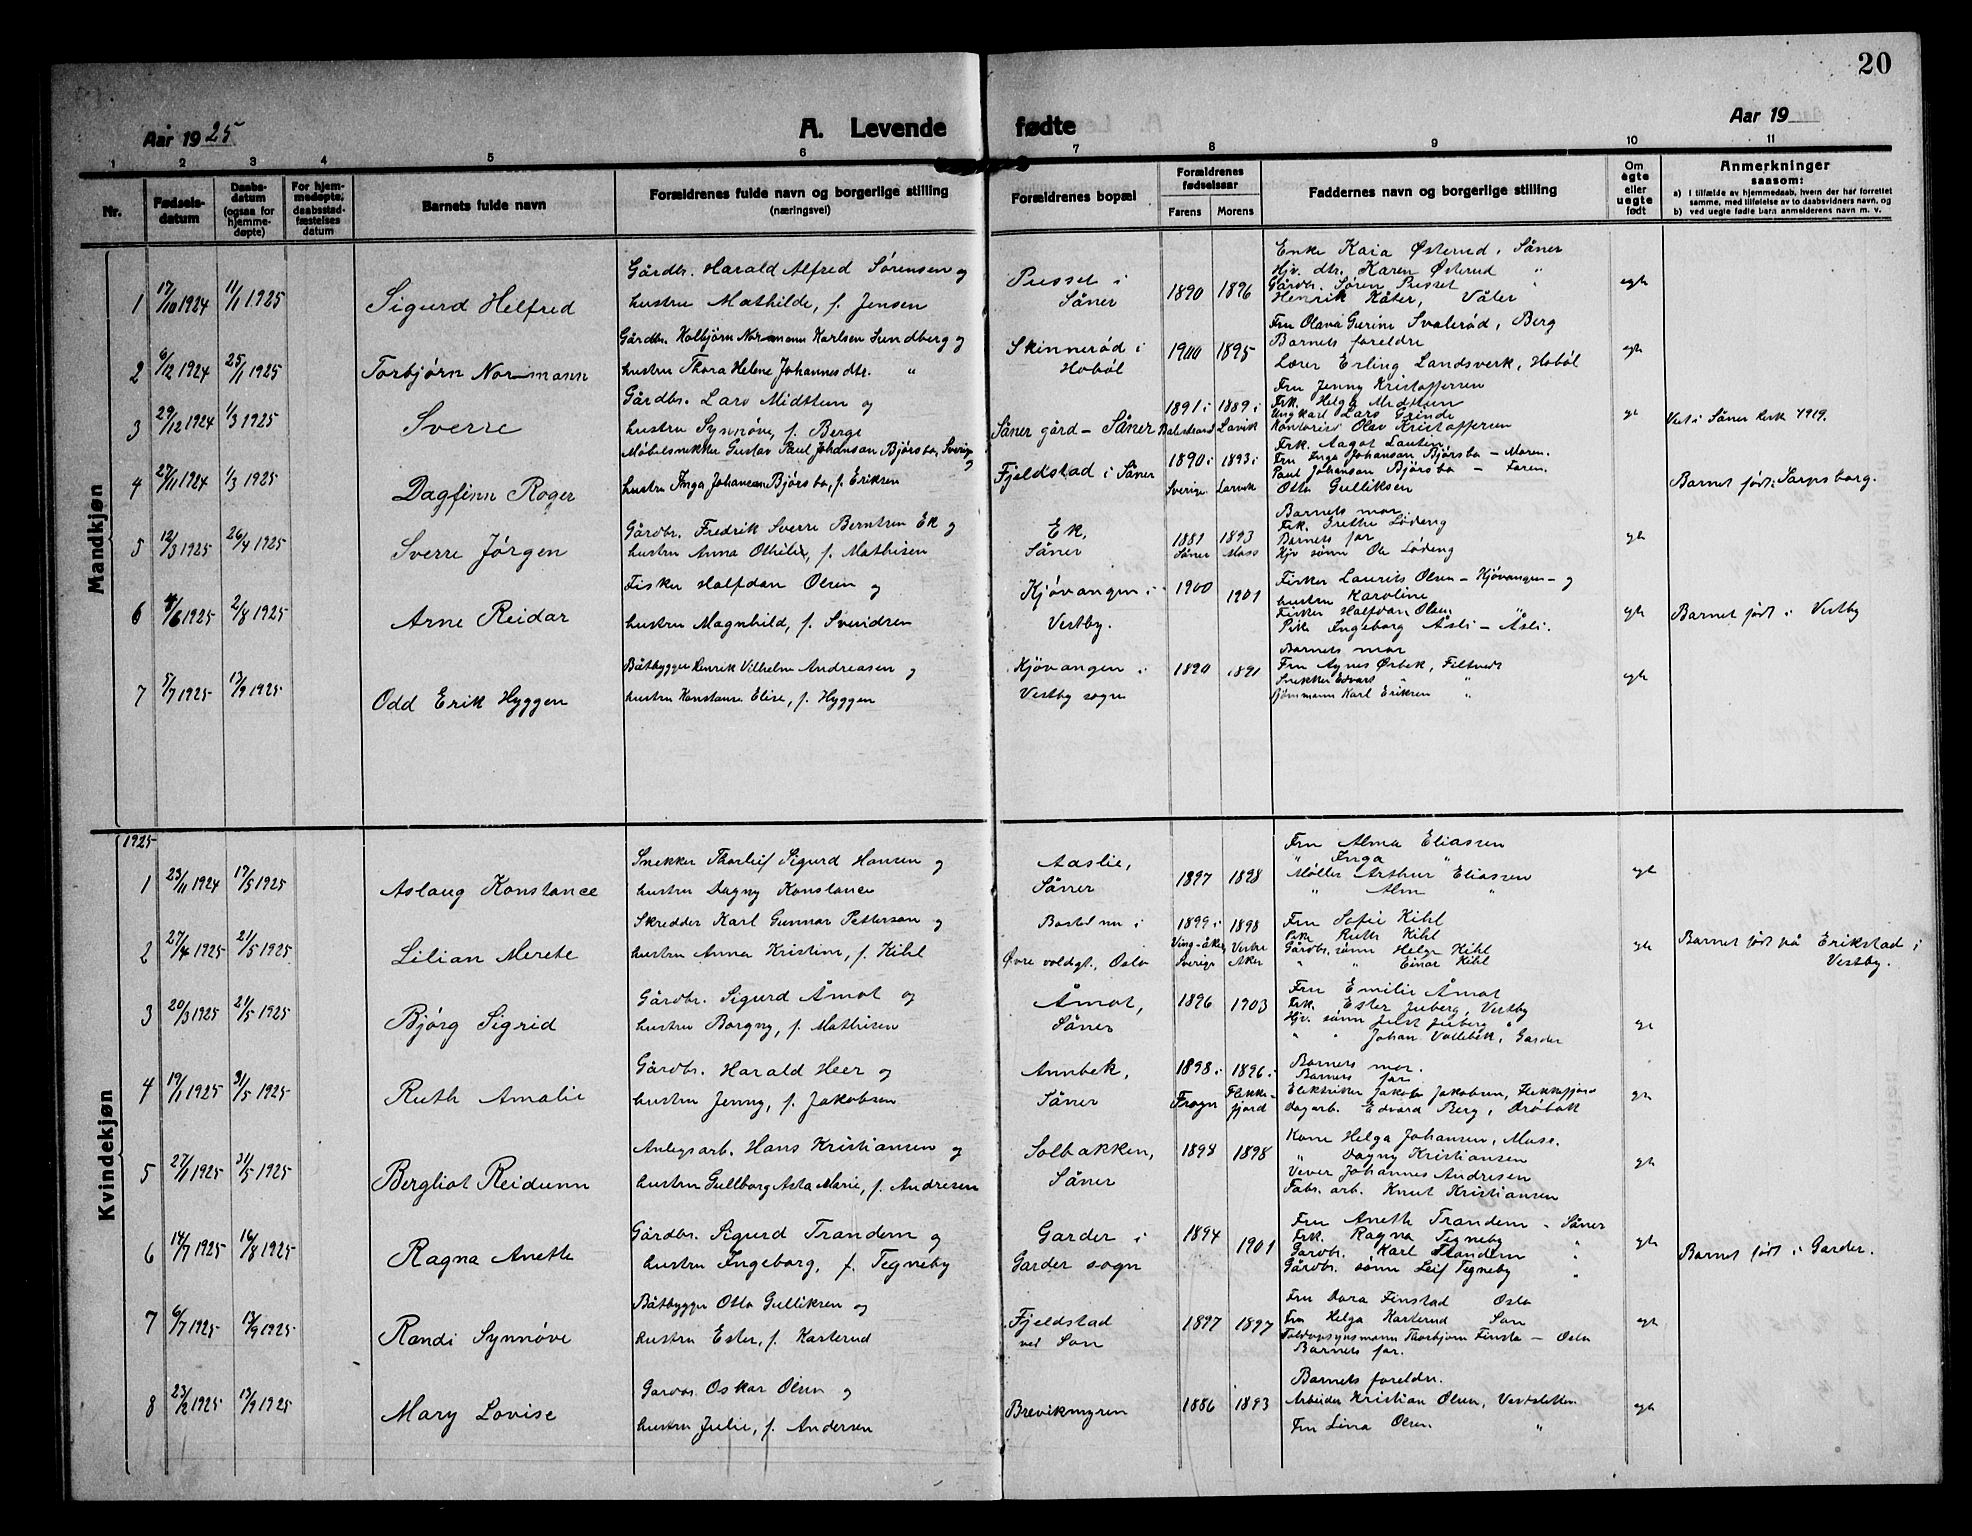 20
Aar 1925 A. Levende fødte Aar 19
1 2 3 4 5 6 7 8 9 10 11
Nr.
Fødsels-
datum
Daabs-
datum
(ogsaa for
hjemme-
døpte)
For hjem-
medøpte,
daabsstad-
fæstelses
datum
Barnets fulde navn
Forældrenes fulde navn og borgerlige stilling
(næringsvei)
Forældrenes bopæl
Forældrenes
fødselsaar
Farens Morens
Faddernes navn og borgerlige stilling
Om
ægte
eller
uegte
født
Anmerkninger
saasom:
a) I tilfælde av hjemmedaab, hvem der har forrettet
samme, med tilføielse av to daabsvidners navn, og
b) ved uegte fødte barn anmelderens navn m. v.
Mandkjøn
1 17/10 1924 11/1 1925 Sigurd Helfred
Gårdbr. Harald Alfred Sørensen og
hustru Mathilde, f. Jensen
Pusset i
Såner
1890 1896
Enke Kaia Østerud, Såner
Hjv. dtr. Karen Østerud "
Gårdbr. Søren Pusset "
Henrik Kåter, Våler
egte
2 6/12 1924 25/1 1925 Torbjørn Normann
Gårdbr. Kolbjørn Normann Karlsen Sundberg og
hustru Thora Helene Johannesdtr. "
Skinnerød i
Hobøl
1900 1895
Fru Olava Gurine Svalerød, Berg
Barnets foreldre
Lærer Erling Landsverk, Hobøl
egte
3 29/12 1924 1/3 1925 Sverre
Gårdbr. Lars Midttun og
hustru Synnøve, f. Berge
Såner gård - Såner
1891 i 1889 i
Balestrand Lavik
Fru Jenny Kristoffersen
Frk. Helga Midttun
Ungkarl Lars Grinde
Kontorist Olav Kristoffersen
egte
Viet i Såner kirke 1919.
4 27/11 1924 1/3 1925 Dagfinn Roger
Møbelsnekker Gustav Paul Johanson Bjørsbo, Sverige
og
hustru Inga Johansen Bjørsbo, f. Eriksen
Fjeldstad i Såner
1890 i 1893 i
Sverige Larvik
Frk. Aagot Lautin
Fru Inga Johansan Bjørsbo - Moren.
Paul Johanson Bjørsbo - Faren.
Otto Gulliksen
Barnet født i Sarpsborg.
5 12/3 1925 26/4 1925 Sverre Jørgen
Gårdbr. Fredrik Sverre Berntsen Ek og
hustru Anna Othilie, f. Mathisen
Ek,
Såner
1881 1893
Såner Moss
Barnets mor
Frk. Grethe Løding
Barnets far
Hjv sønn Ole Løding
egte
6 4/6 1925 2/8 1925 Arne Reidar
Fisker Halfdan Olsen og
hustru Magnhild, f. Svendsen
Kjøvangen i
Vestby.
1900 1901
Fisker Laurits Olsen - Kjøvangen - og
hustru Karoline
Fisker Halfdan Olsen "
Pike Ingeborg Åsli - Åsli.
egte
Barnet født i Vestby
7 5/7 1925 13/9 1925 Odd Erik Hyggen
Båtbygger Henrik Vilhelm Andreasen og
hustru Konstanse Elise, f. Hyggen
Kjøvangen i
Vestby sogn
1890 1891
Barnets mor
Fru Agnes Ørbek, Filtvedt
Snekker Edvart " "
Sjømmann Karl Eriksen "
egte
Kvindekjøn
1925
1 23/11 1924 17/5 1925 Aslaug Konstance
Snekker Thorleif Sigurd Hansen og
hustru Dagny Konstance
Aaslie,
Såner
1897 1898
Fru Alma Eliassen
" Inga "
Møller Arthur Eliassen
" Alm "
egte
2 27/4 1925 21/5 1925 Lilian Merete
Skredder Karl Gunnar Petterson og
hustru Anna Kristine, f. Kihl
Bosted nu i
Øvre voldgt., Oslo
1899 i 1898
Ving-åker Vestre
Sverige Aker
Fru Sofie Kihl
Pike Ruth Kihl
Gårdbr. sønn Helge Kihl
" " Einar Kihl
egte
Barnet født på Erikstad i
Vestby.
3 20/3 1925 21/5 1925 Bjørg Sigrid
Gårdbr. Sigurd Åmot og
hustru Borgny, f. Mathisen
Åmot,
Såner
1896 1903
Fru Emilie Åmot
Frk. Ester Juberg, Vestby
Hjv. sønn Juberg "
" " Johan Vollebek, Garder
egte
4 19/1 1925 31/5 1925 Ruth Amalie
Gårdbr. Harald Heer og
hustru Jenny, f. Jakobsen
Annbek,
Såner
1898 i 1896 i
Frogn Flekke-
fjord
Barnets mor.
Barnets far
Elektriker Jakob Jakobsen, Flekkefjord
dagarb. Edvard Berg, Drøbak
egte
5 27/1 1925 31/5 1925 Bergliot Reidunn
Anlegsarb. Hans Kristiansen og
hustru Gullborg Asta Marie, f. Andresen
Solbakken,
Såner
1894 1898
Kone Helga Johansen, Moss.
" Dagny Kristiansen
Vever Johannes Andresen
Fabr. arb. Knut Kristiansen
egte
6 14/7 1925 16/8 1925 Ragna Anette
Gårdbr. Sigurd Trandem og
hustru Ingeborg, f. Tegneby
Garder i
Garder sogn
1894 1901
Fru Anette Trandem - Såner
Frk. Ragna Tegneby
Gårdbr. Karl Trandem "
Gårdbr. sønn Leif Tegneby "
egte
Barnet født i Garder.
7 6/7 1925 13/9 1925 Randi Synnøve
Båtbygger Otto Gulliksen og
hustru Ester, f. Karterud
Fjeldstad
ved Son
1897 1897
Fru Dora Finstad Oslo
Fru Helga Karterud Son
Toldopsynsmann Thorbjørn Finsta - Oslo
Barnets far.
egte
8 23/2 1925 13/9 1925 Mary Lovise
Gårdbr. Oskar Olsen og
hustru Julie, f. Andersen
Brevikmyren
1886 1893
Barnets foreldre.
Arbeider Kristian Olsen, Vestsletten
Fru Lina Olsen. "
egte